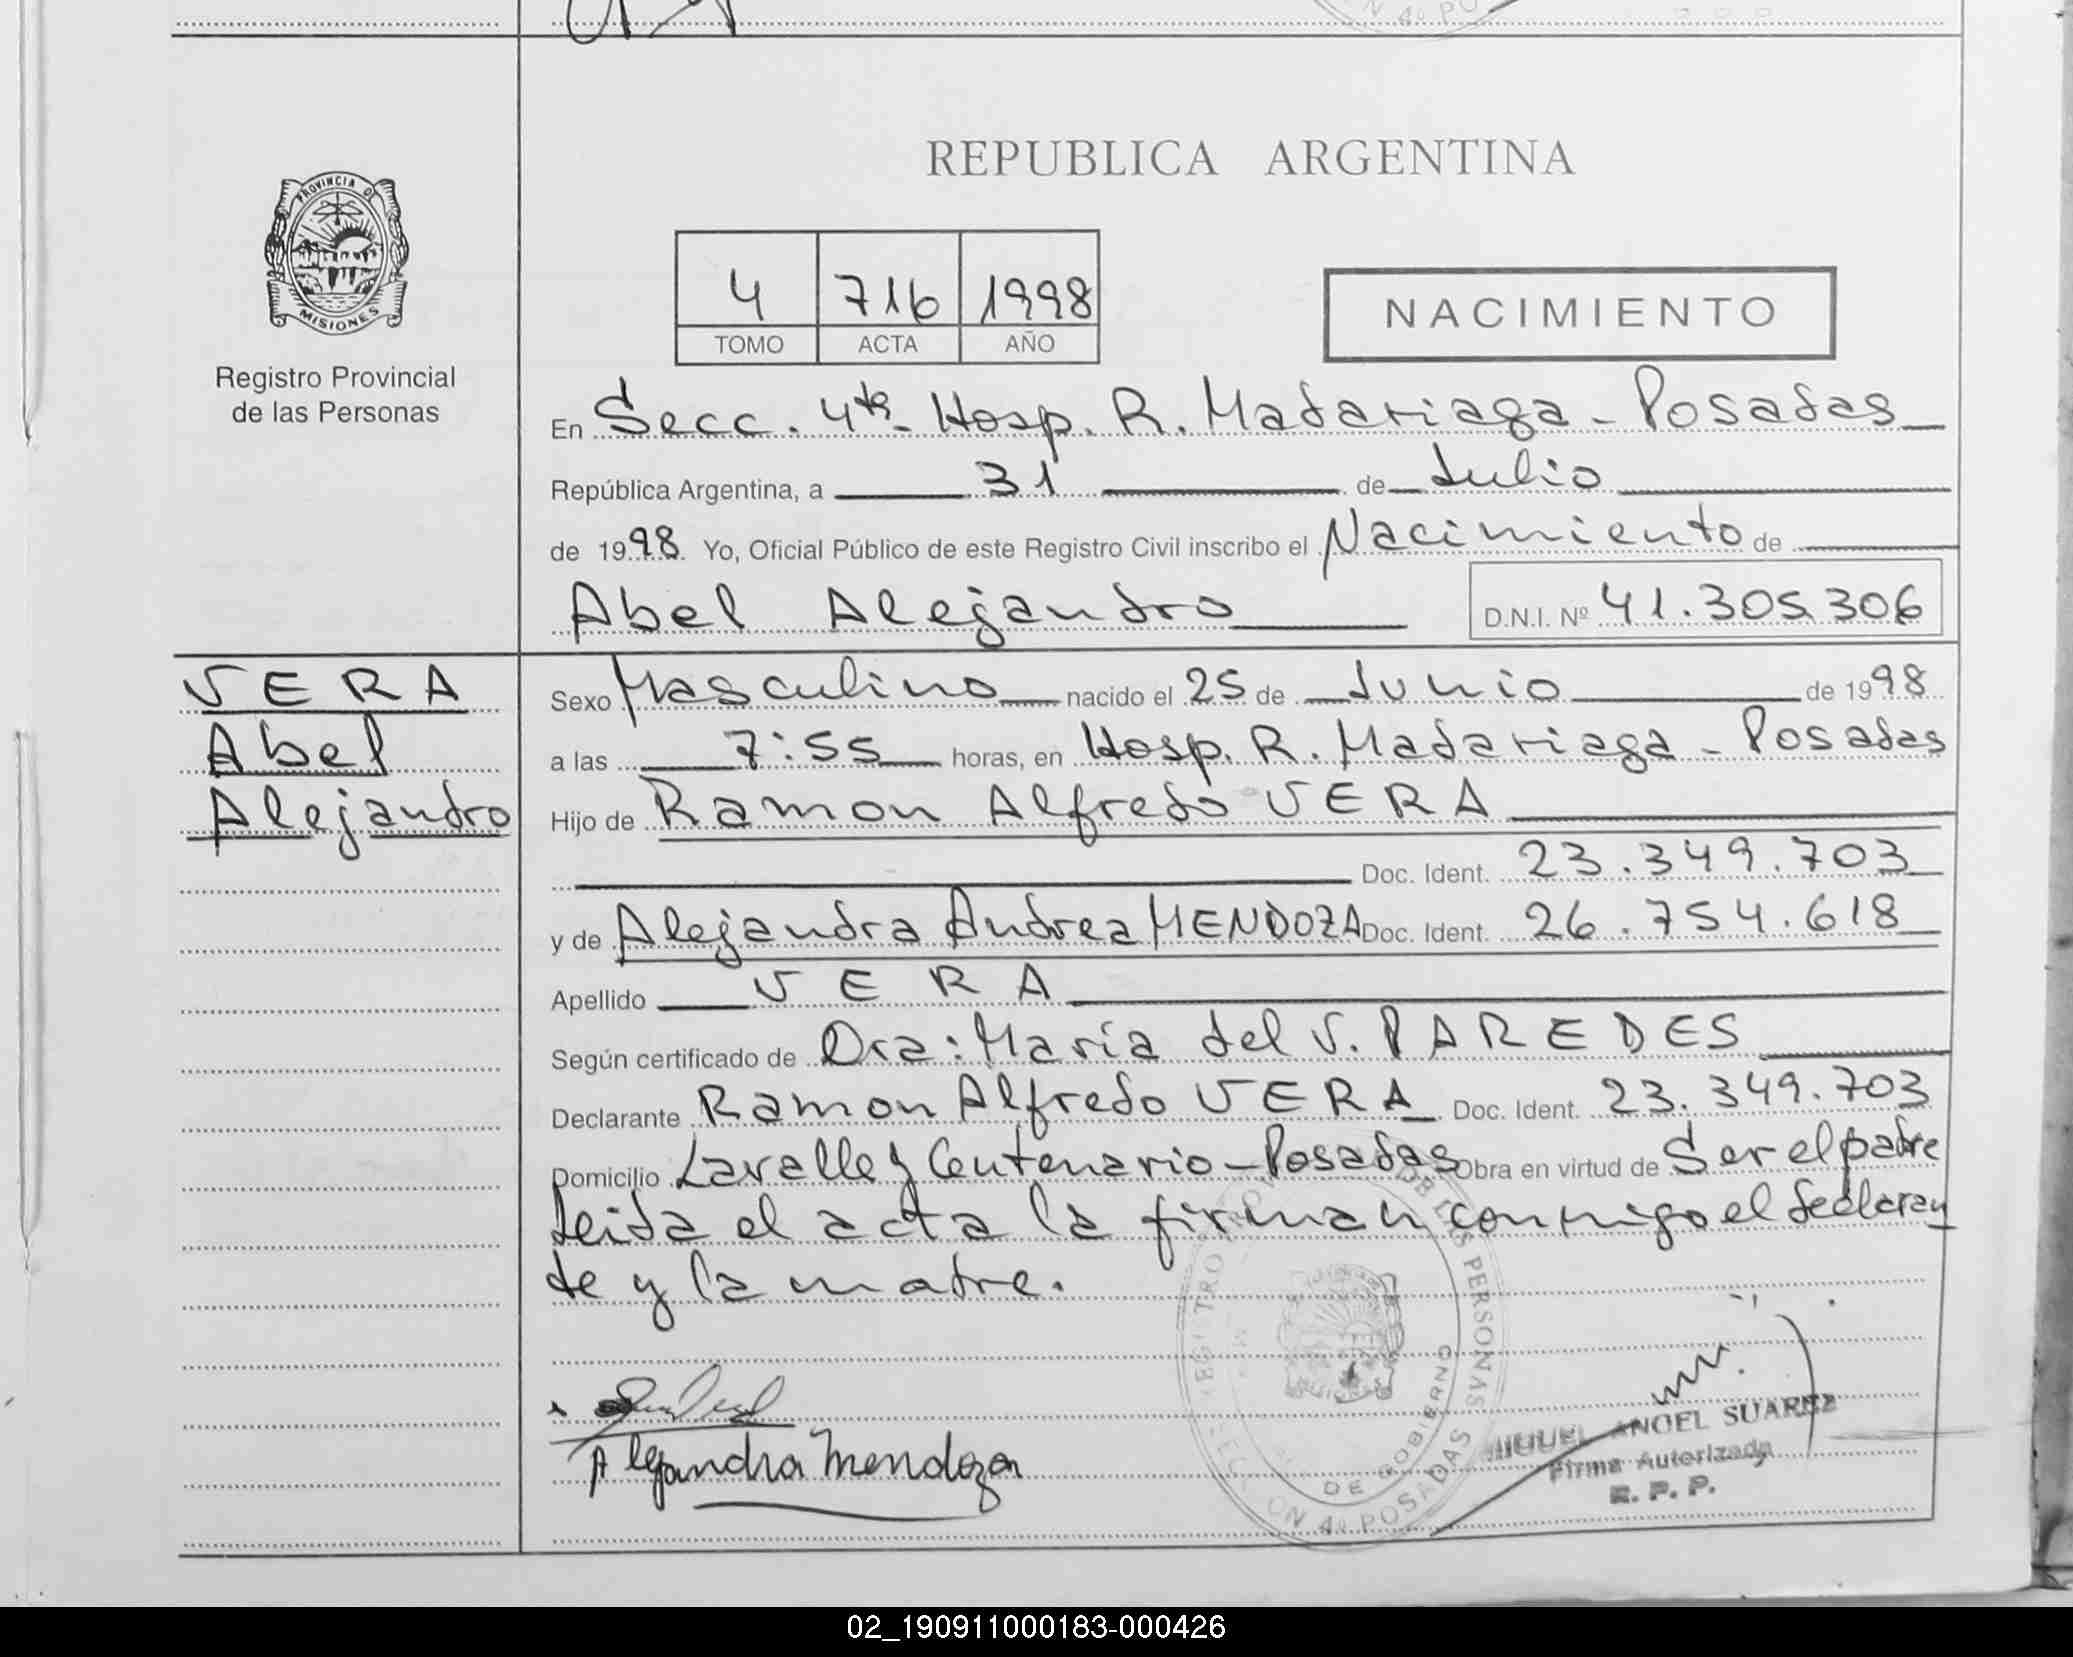 REPUBLICA ARGENTINA
PROVINCIA DE
MISIONES
Registro Provincial
de las Personas
4 716 1998
TOMO ACTA AÑO
NACIMIENTO
En Secc. 4ta. Hosp. R. Madariaga - Posadas
República Argentina, a 31 de Julio
de 1998 Yo, Oficial Público de este Registro Civil inscribo el Nacimiento de
Abel Alejandro D.N.I. Nº 41.305.306
VERA
Abel
Alejandro
Sexo Masculino nacido el 25 de Junio de 1998
a las 7:55 horas, en Hosp. R. Madariaga - Posadas
Hijo de Ramon Alfredo VERA
Doc. Ident. 23.349.703
y de Alejandra Andrea MENDOZA Doc. Ident. 26.754.618
Apellido VERA
Según certificado de Dra: María del V. PAREDES
Declarante Ramon Alfredo VERA Doc. Ident. 23.349.703
Domicilio Lavalle y Centenario - Posadas Obra en virtud de Ser el padre
Leida el acta la firman conmigo el declaran
te y la madre.
Alejandra Mendoza
REGISTRO DE LAS PERSONAS
DE GOBIERNO
SECCION 4º POSADAS
MIGUEL ANGEL SUAREZ
Firma Autorizada
R. P. P.
02_190911000183-000426